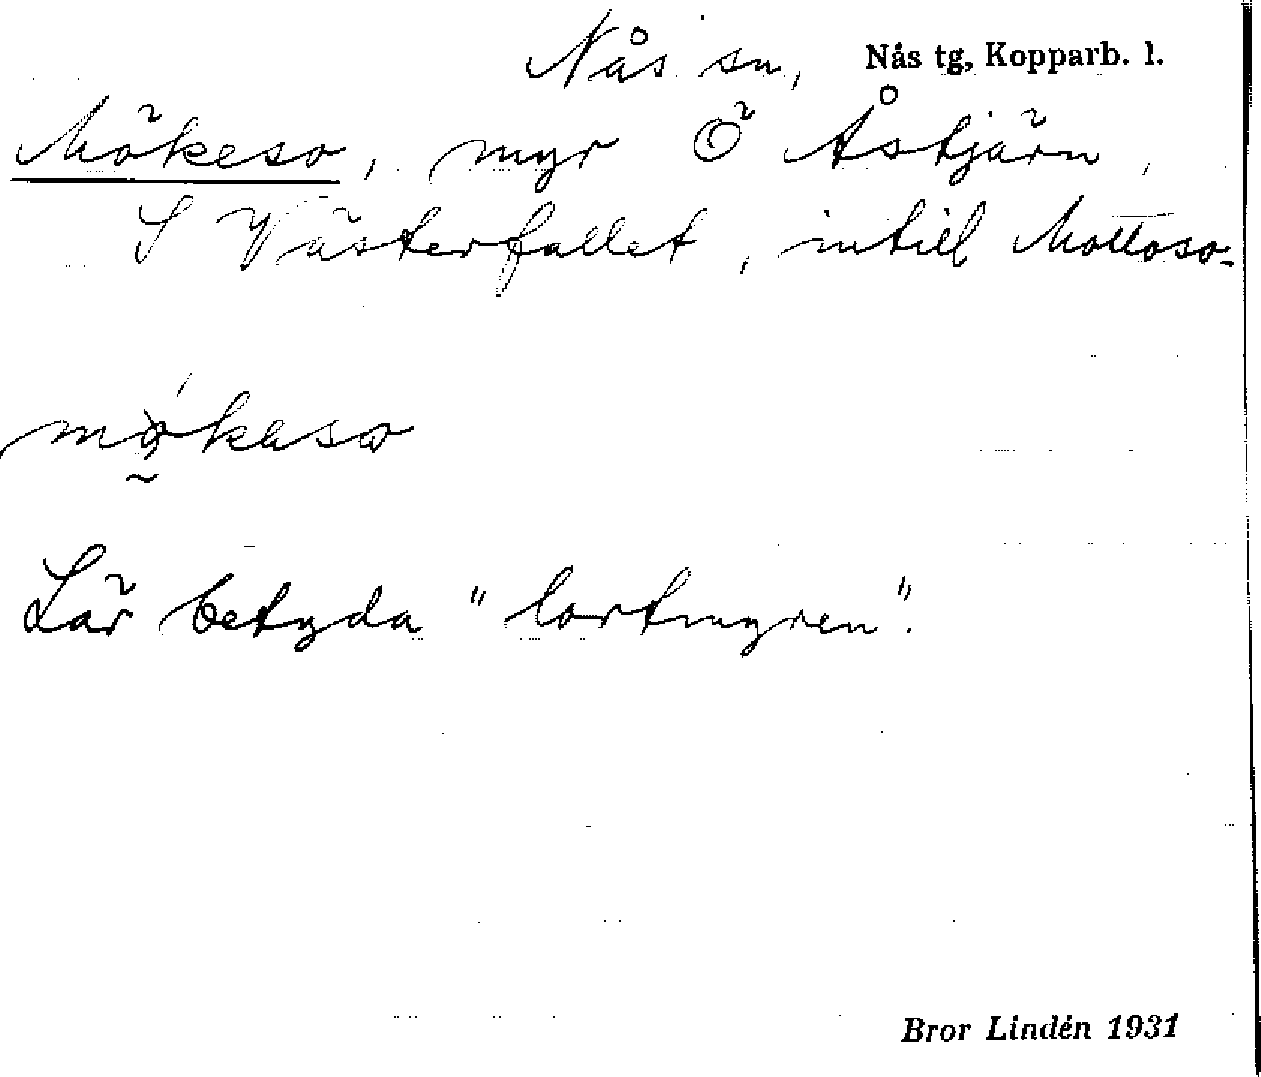 Nås sn, Nås tg, Kopparb. l.
Mökeso, myr Ö Åstjärn,
S Västerfallet, intill Mottoso-
Lär betyda "lortmyren".
Bror Lindén 1931